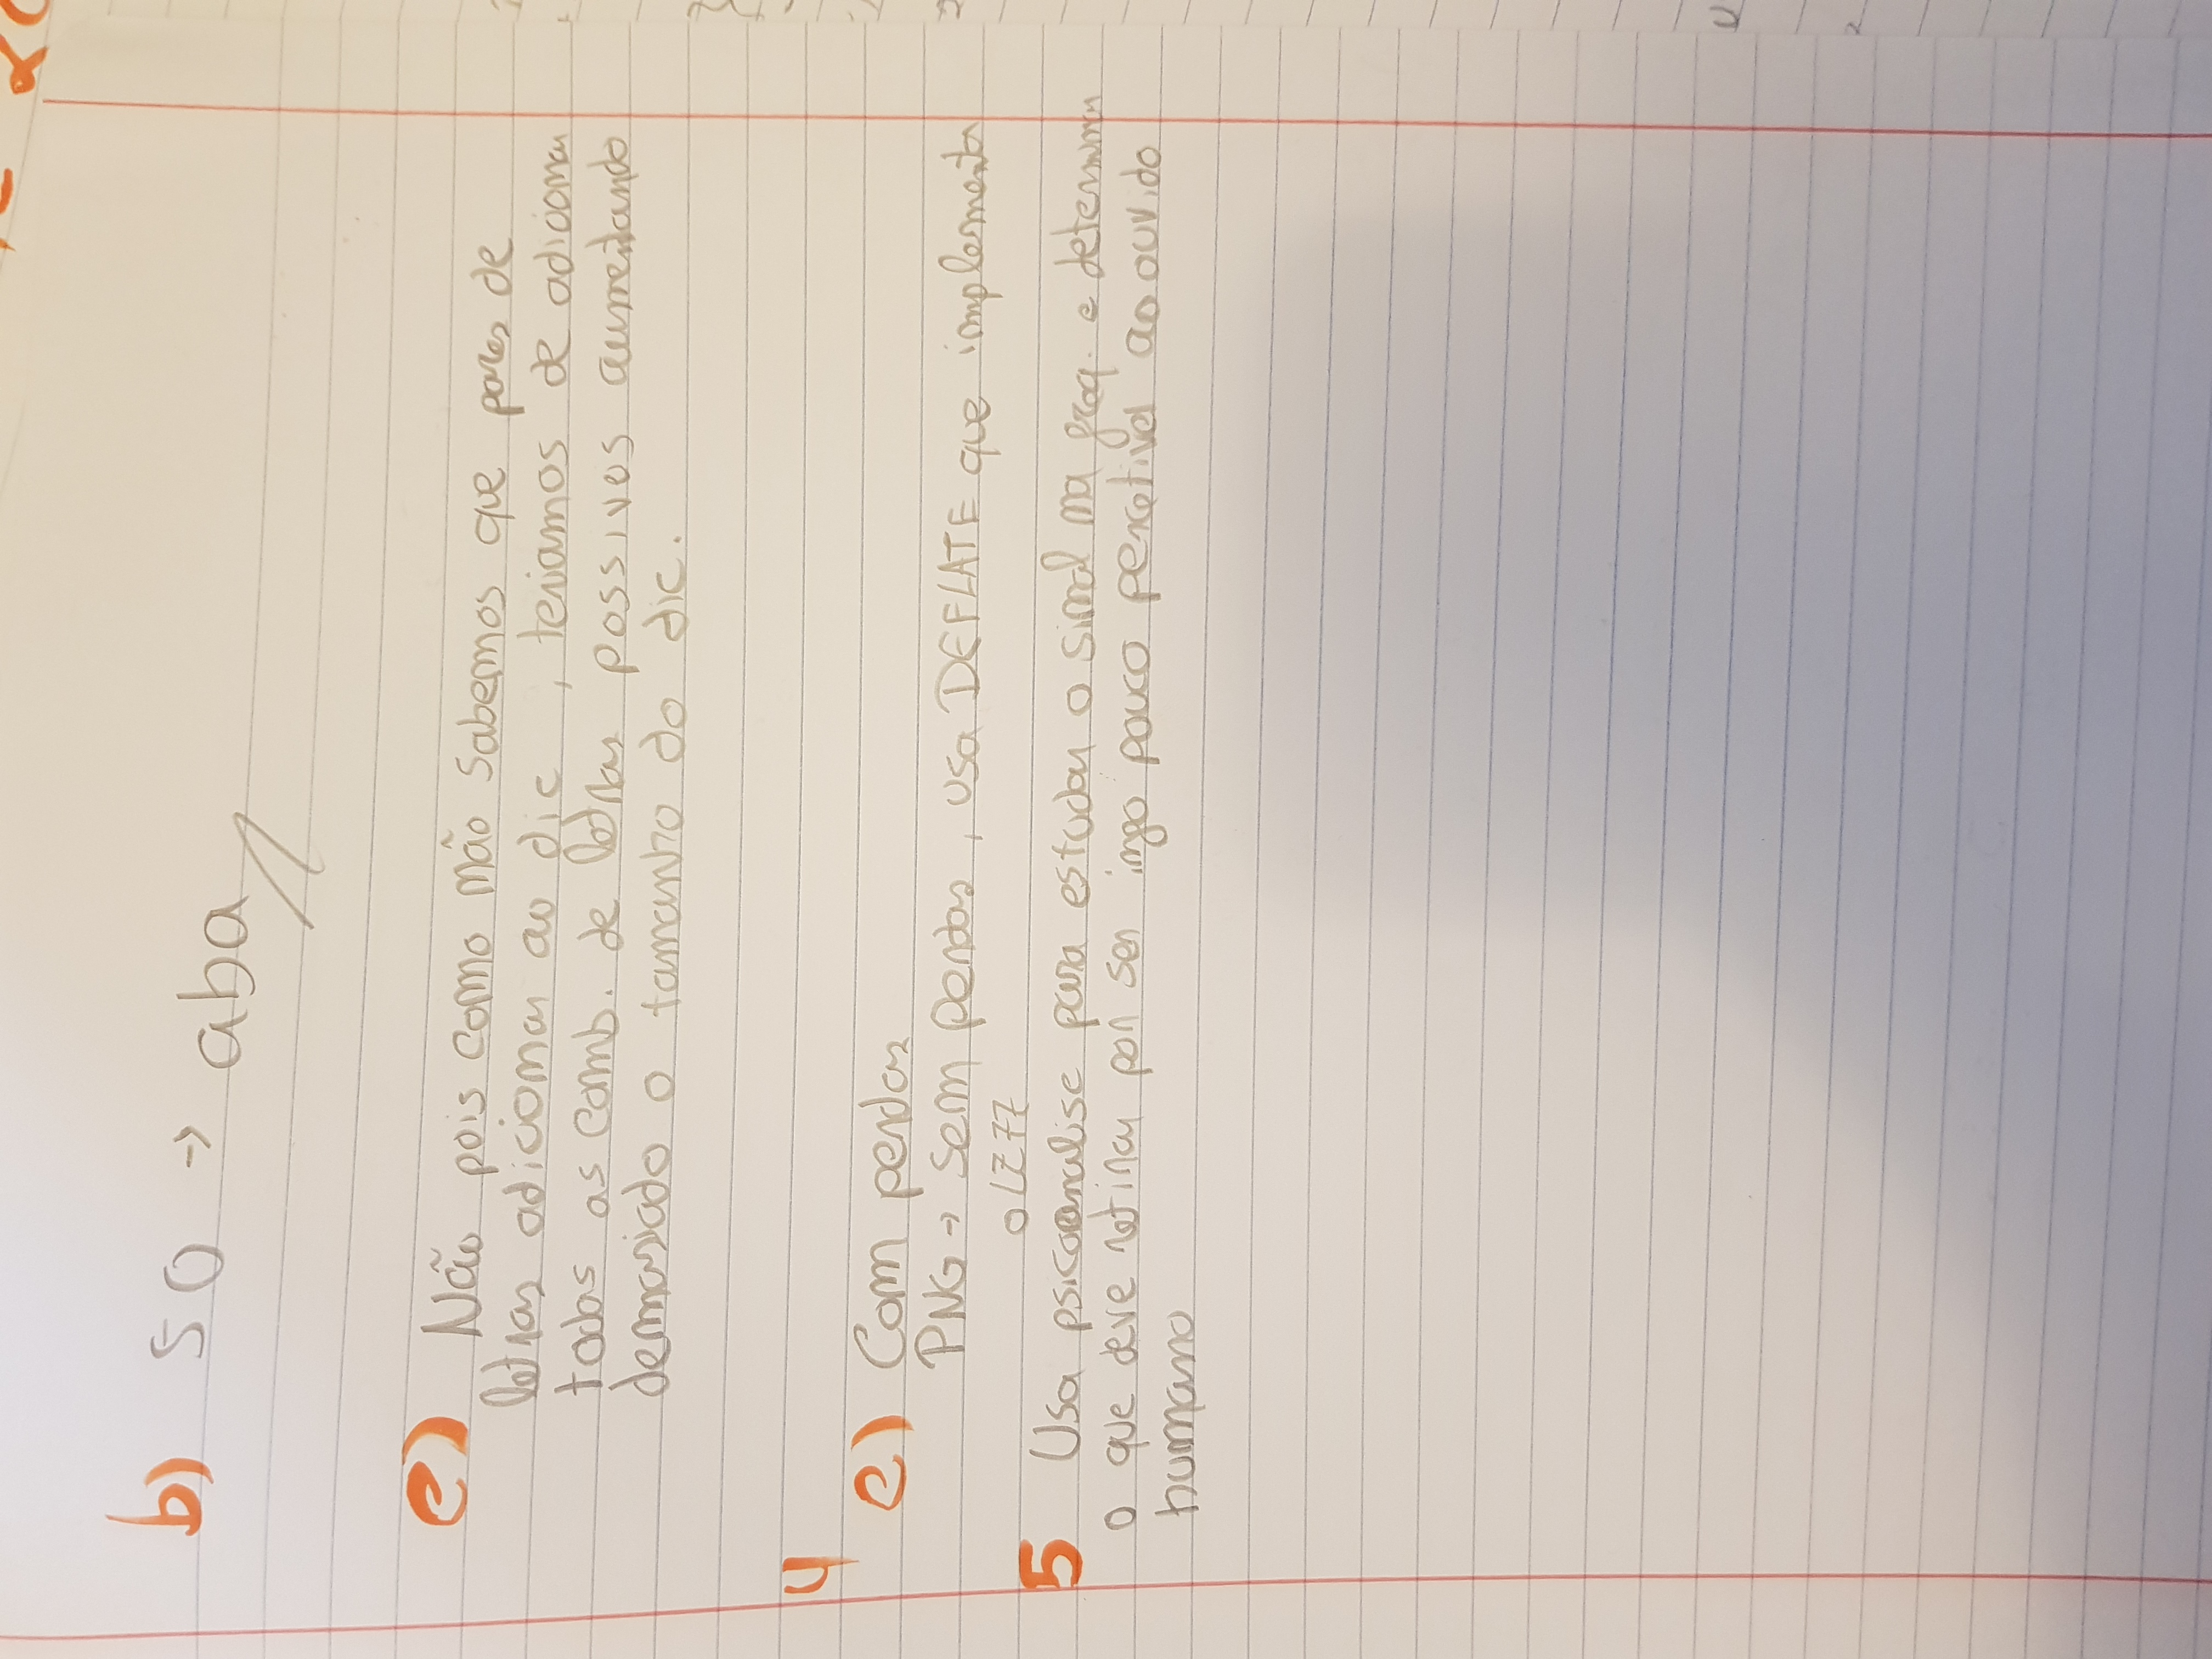 b) 50 → aba
c) Não pois como não sabemos que pares de
letras adicionar ao dic , teriamos de adicionar
todas as comb. de letras possiveis aumentando
demasiado o tamanho do dic.
4
e) Com perdas
PNG → sem perdas, usa DEFLATE que implementa
o LZ77
5 Usa psicoanalise para estudar o sinal na freq. e determinar
o que deve retirar por ser info pouco percetivel ao ouvido
humano